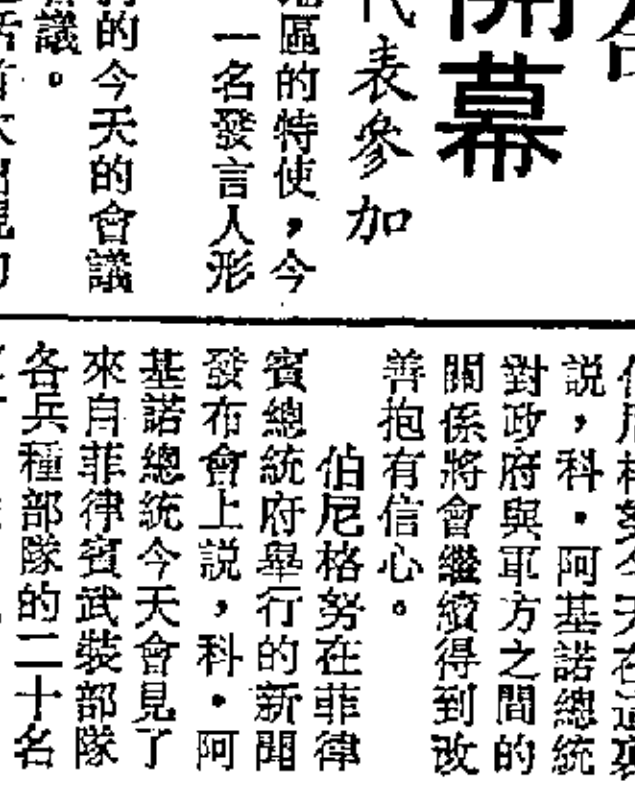 開幕
代表參加
區的特使，今
一名發言人形
的今天的會議
議。
説，科·阿基諾總統
對政府與軍方之間的
關係將會繼續得到改
善抱有信心。
伯尼格努在菲律
賓總統府舉行的新聞
發布會上説，科·阿
基諾總統今天會見了
來自菲律賓武裝部隊
各兵種部隊的二十名